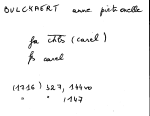 BULCKAERT anne pétronelle
fa chls (carel)
fs carel
(1716) 327, 144vo
" " (147